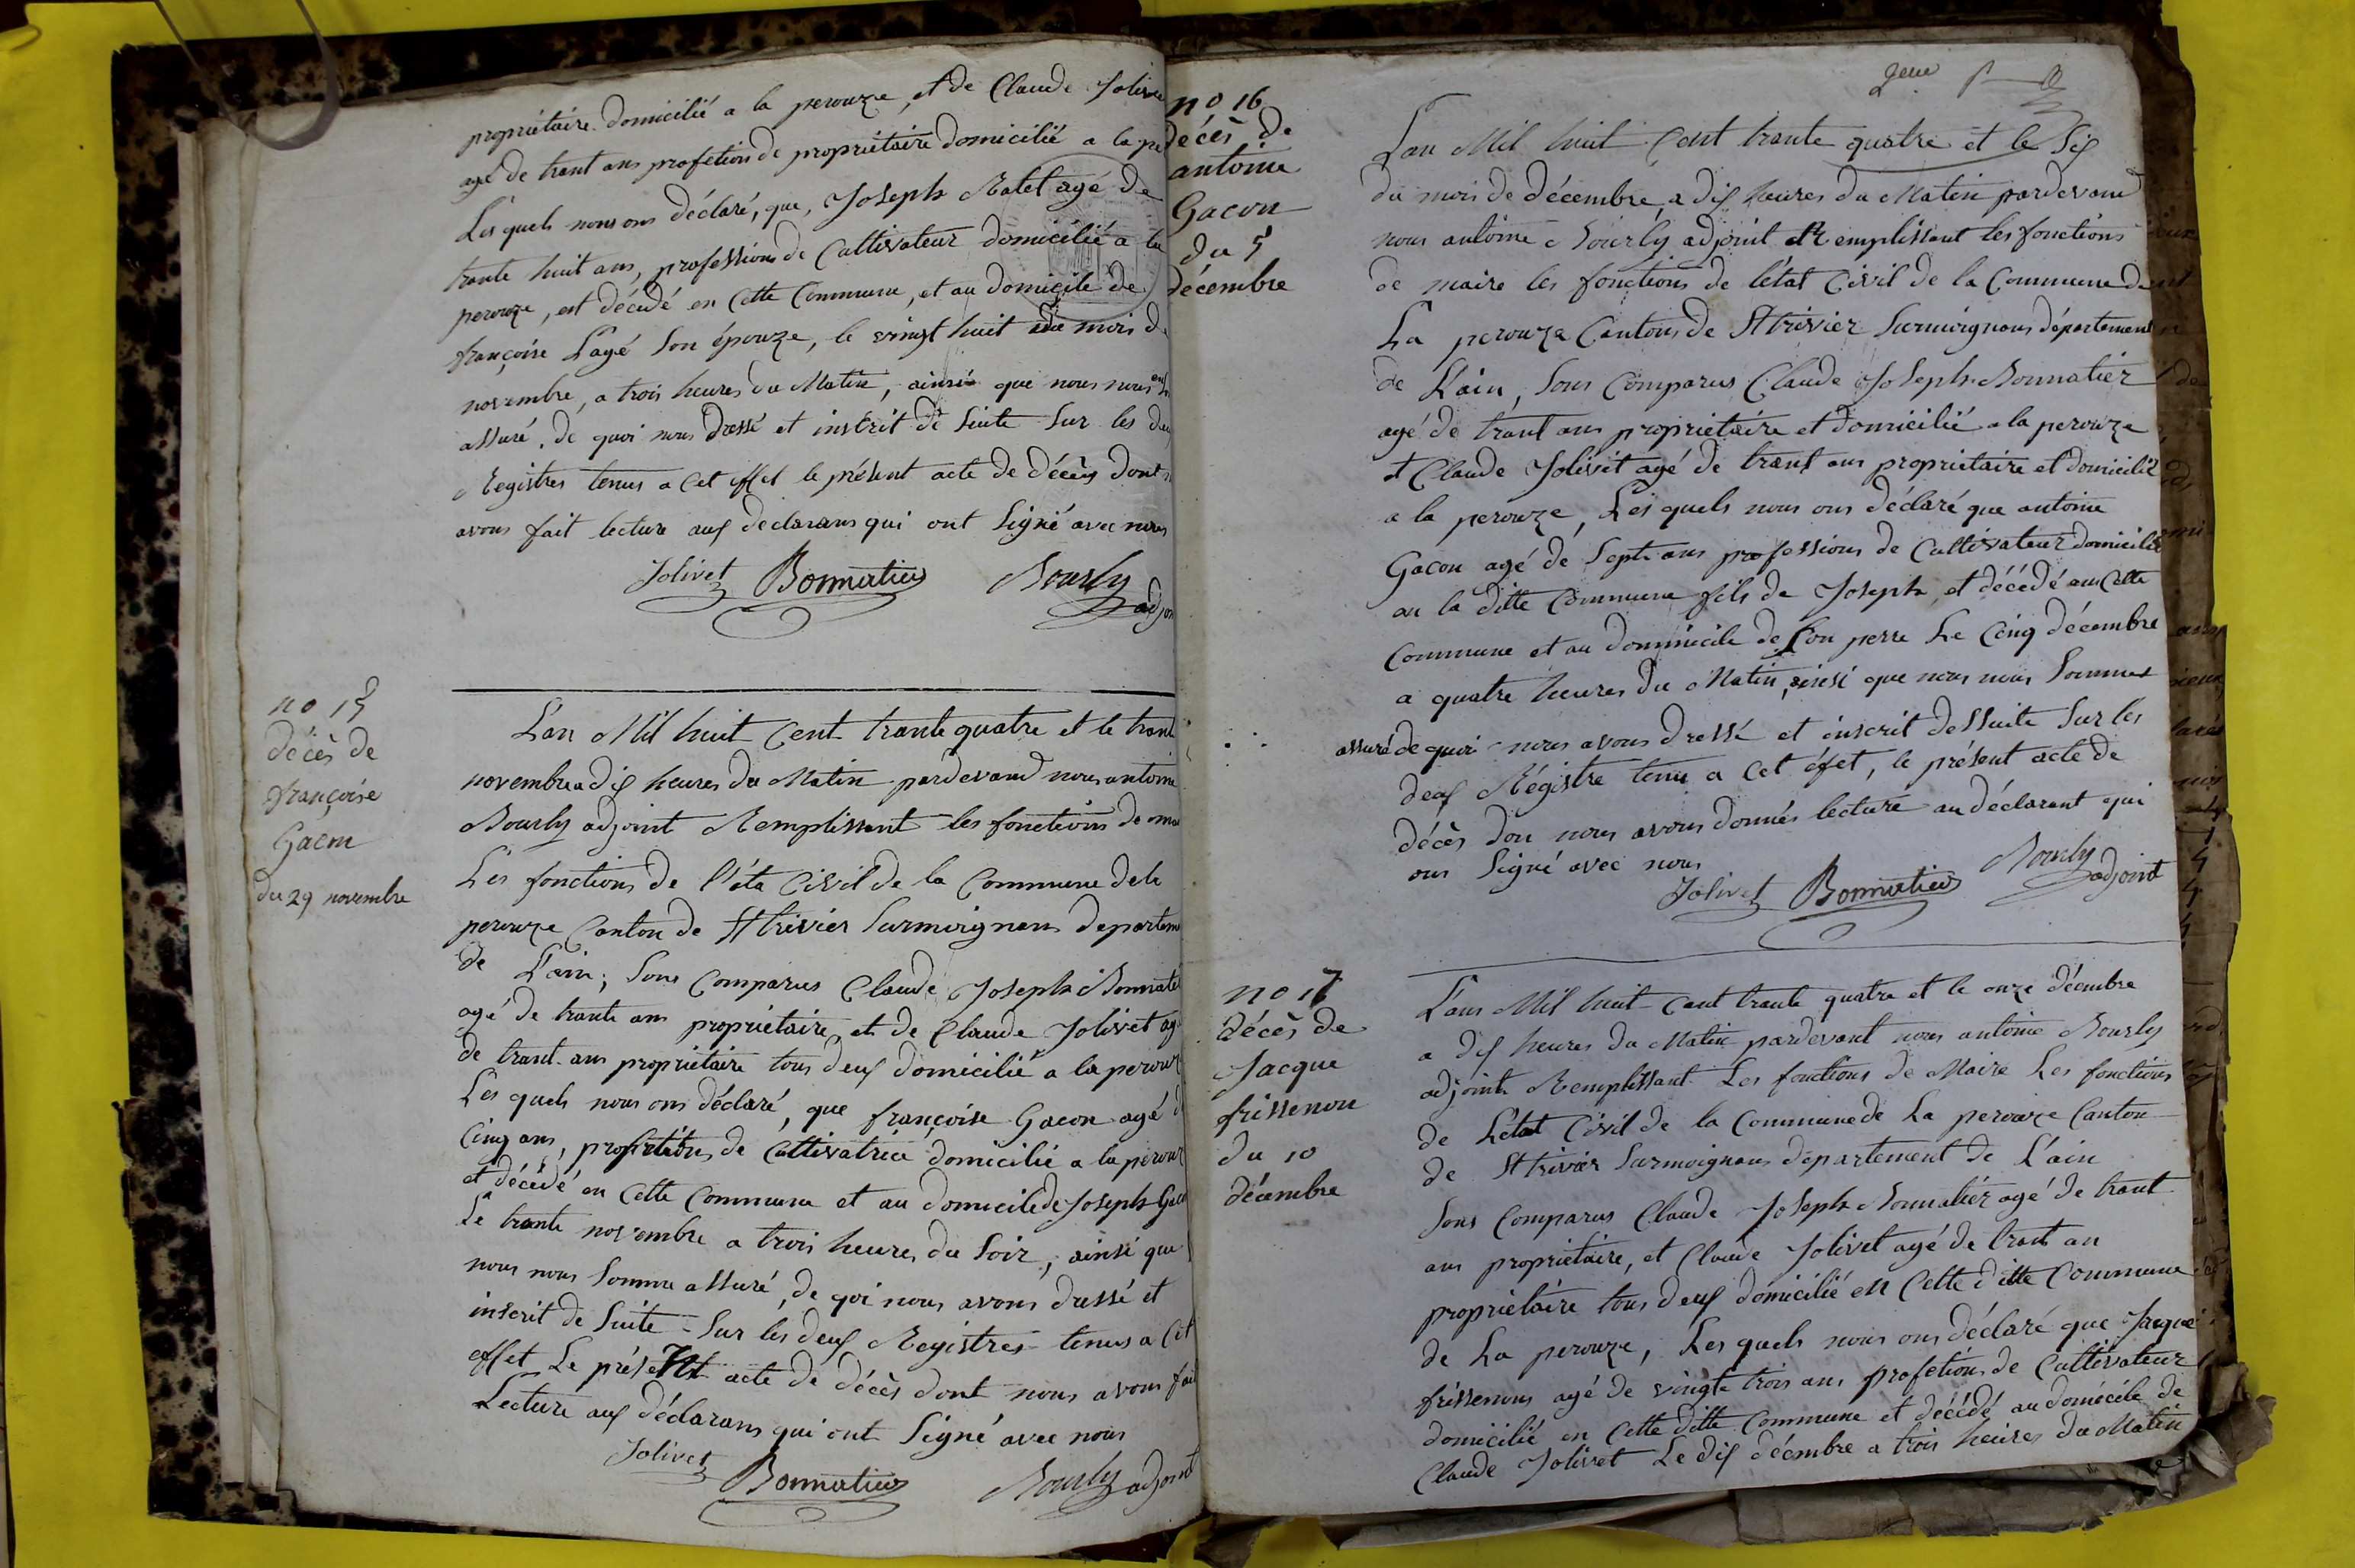 propriétaire domicilié a la perouze, et de Claude Jolive
agé de trant ans profetion de propriétaire domicilié a la pe
Les quels nous ons déclaré, que, Joseph Ratel agé de
trante huit ans, professions de Cultivateur domicilié a la
perouze, est décédé en Cette Commune, et au domicile de
françoise Pagé Son épouze, le vingt huit du mois de
novembre, a trois heures du Matin, ainsi que nous nous
assuré. de quoi nous dressé et inscrit de Suite Sur les deu
Registres tenus a Cet effet le présent acte de décès dont
avons fait lecture aux declarans qui ont Signé avec nous
Jolivet Bonnatier Bourly
adjoi
no 15
décès de
françoise
Gacon
du 29 novembre
L'an Mil huit Cent trante quatre et le trant
novembre a dix heures du Matin pardevand nous antoine
Bourly adjoint Remplissant les fonctions de ma
Les fonctions de l'éta Civil de la Commune dela
perouze Canton de St trivier Surmoignans departem
de L'ain; Sons Comparus Claude Joseph Bonnatié
agé de trante ans propriétaire, et de Claude Jolivet ag
de trant ans propriétaire tous deux domicilié a la perouz
Les quels nous ons déclaré, que françoise Gacon agé d
Cinq ans, profetions de Cultivatrice domicilié a la perouz
et décédé en Cette Commune et au domicile de Joseph Gaco
Le trante novembre a trois heures du Soir, ainsi que
nous nous Somme assuré, de qoi nous avons dressé et
inscrit de Suite Sur les deux Registres tenus a Cet
effet Le présent acte de décès dont nous avons fait
Lecture aux déclarans qui ont Signé avec nous
Jolivet Bonnatier Bourly adjoint
no 16
décès de
antoine
Gacon
du 5
décembre
2eme
L'an Mil huit Cent trante quatre et le Six
du mois de décembre, a dix heures du Matin pardevand
nous antoine Bourly adjoint Remplissant les fonctions
de maire les fonctions de létat Civil de la Commune de
La perouze Cantons de St trivier Surmoignans département
de L'ain, Sons Comparus Claude Joseph Bonnatier
agé de trant ans propriétaire et domicilié a la perouze
et Claude Jolivet agé de trant ans propriétaire et domicilié
a la perouze, Les quels nous ons déclaré que antoine
Gacon agé de Sept ans professions de Cultivateur domicilié
an la ditte Commune fils de Joseph et décédé ans Cette
Commune et au dommicile de Son perre Le Cinq décembre
a quatre heures du Matin, ainsi que nous nous Sommes
assuré de quoi nous avons dressé et inscrit dessuite Sur les
deux Régistre tenu a Cet éfet, le présent acte de
décès don nous avons donnés lecture au déclarant qui
ons Signé avec nous
Jolivet Bonnatier Bourly
adjoint
no 17
décès de
Jacque
frissenon
du 10
décembre
L'ans Mil huit Cent trante quatre et le onze décembre
a dix heures du Matin pardevant nous antoine Bourly
adjoint Remplissant Les fonctions de Maire Les fonctions
de L'état Civil de la Commune de La perouze Canton
de St trivier Surmoignans département de L'ain
Sons Comparus Claude Joseph Bonnatier agé de trant
ans propriétaire, et Claude Jolivet agé de trant an
propriétaire tous deux domicilié en Cette ditte Commune
de La perouze, Les quels nous ons déclaré que Jacque
frissenons agé de vingte trois ans profetions de Cultivateur
domicilié en Cette ditte Commune et décédé au domicile de
Claude Jolivet Le dix décembre a trois heures du Matin